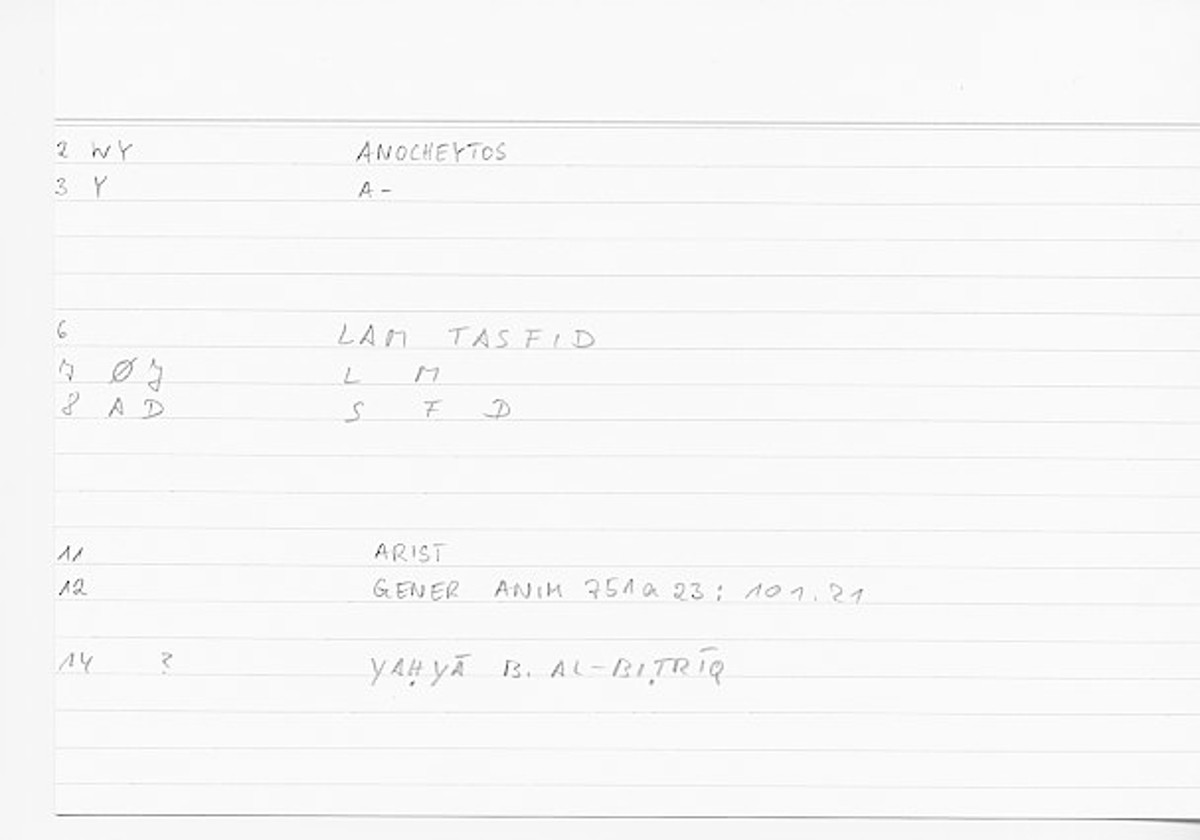 2 WY ANOCHEYTOS
3 Y A-
6 LAM TASFID
7 Ø J L M
8 A D S F D
11 ARIST
12 GENER ANIM 751a 23: 101.21
14 ? YAḤYĀ B. AL-BIṬRĪQ